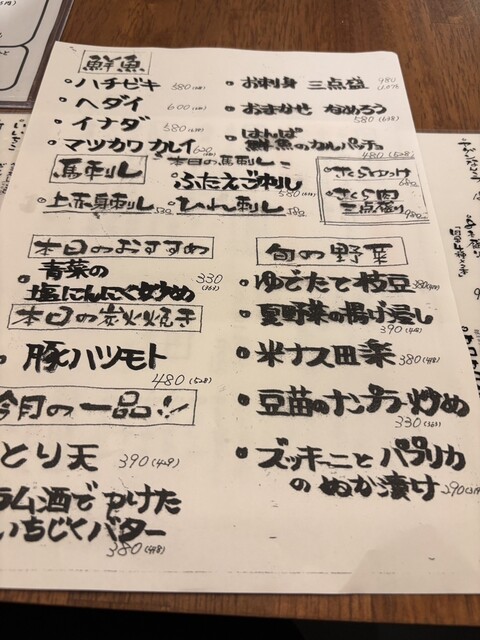 鮮魚
・ハチビキ 580(638)
・ヘダイ 600(660)
・イナダ 580(638)
・マツカワカレイ
・お刺身 三点盛 980
1,078
・おまかせ なめろう
580(638)
・はんぱ
鮮魚のカルパッチョ
480(528)
馬刺し
本日の馬刺し
・ふたえご刺し
580
・上赤身刺し
・ひれ刺し
・さくらユッケ
・さくら肉
三点盛り 980
本日のおすすめ
・青菜の
塩にんにく炒め 330
(363)
本日の炭火焼き
・豚ハツモト
480(528)
今月の一品!!
とり天 390(429)
ラム酒でつけた
いちじくバター
380(418)
旬の野菜
・ゆでたて枝豆 380(418)
・夏野菜の揚げ浸し
390(429)
・米ナス田楽 380(418)
・豆苗のナンプラー炒め
330(363)
・ズッキーニとパプリカ
のぬか漬け 290(319)